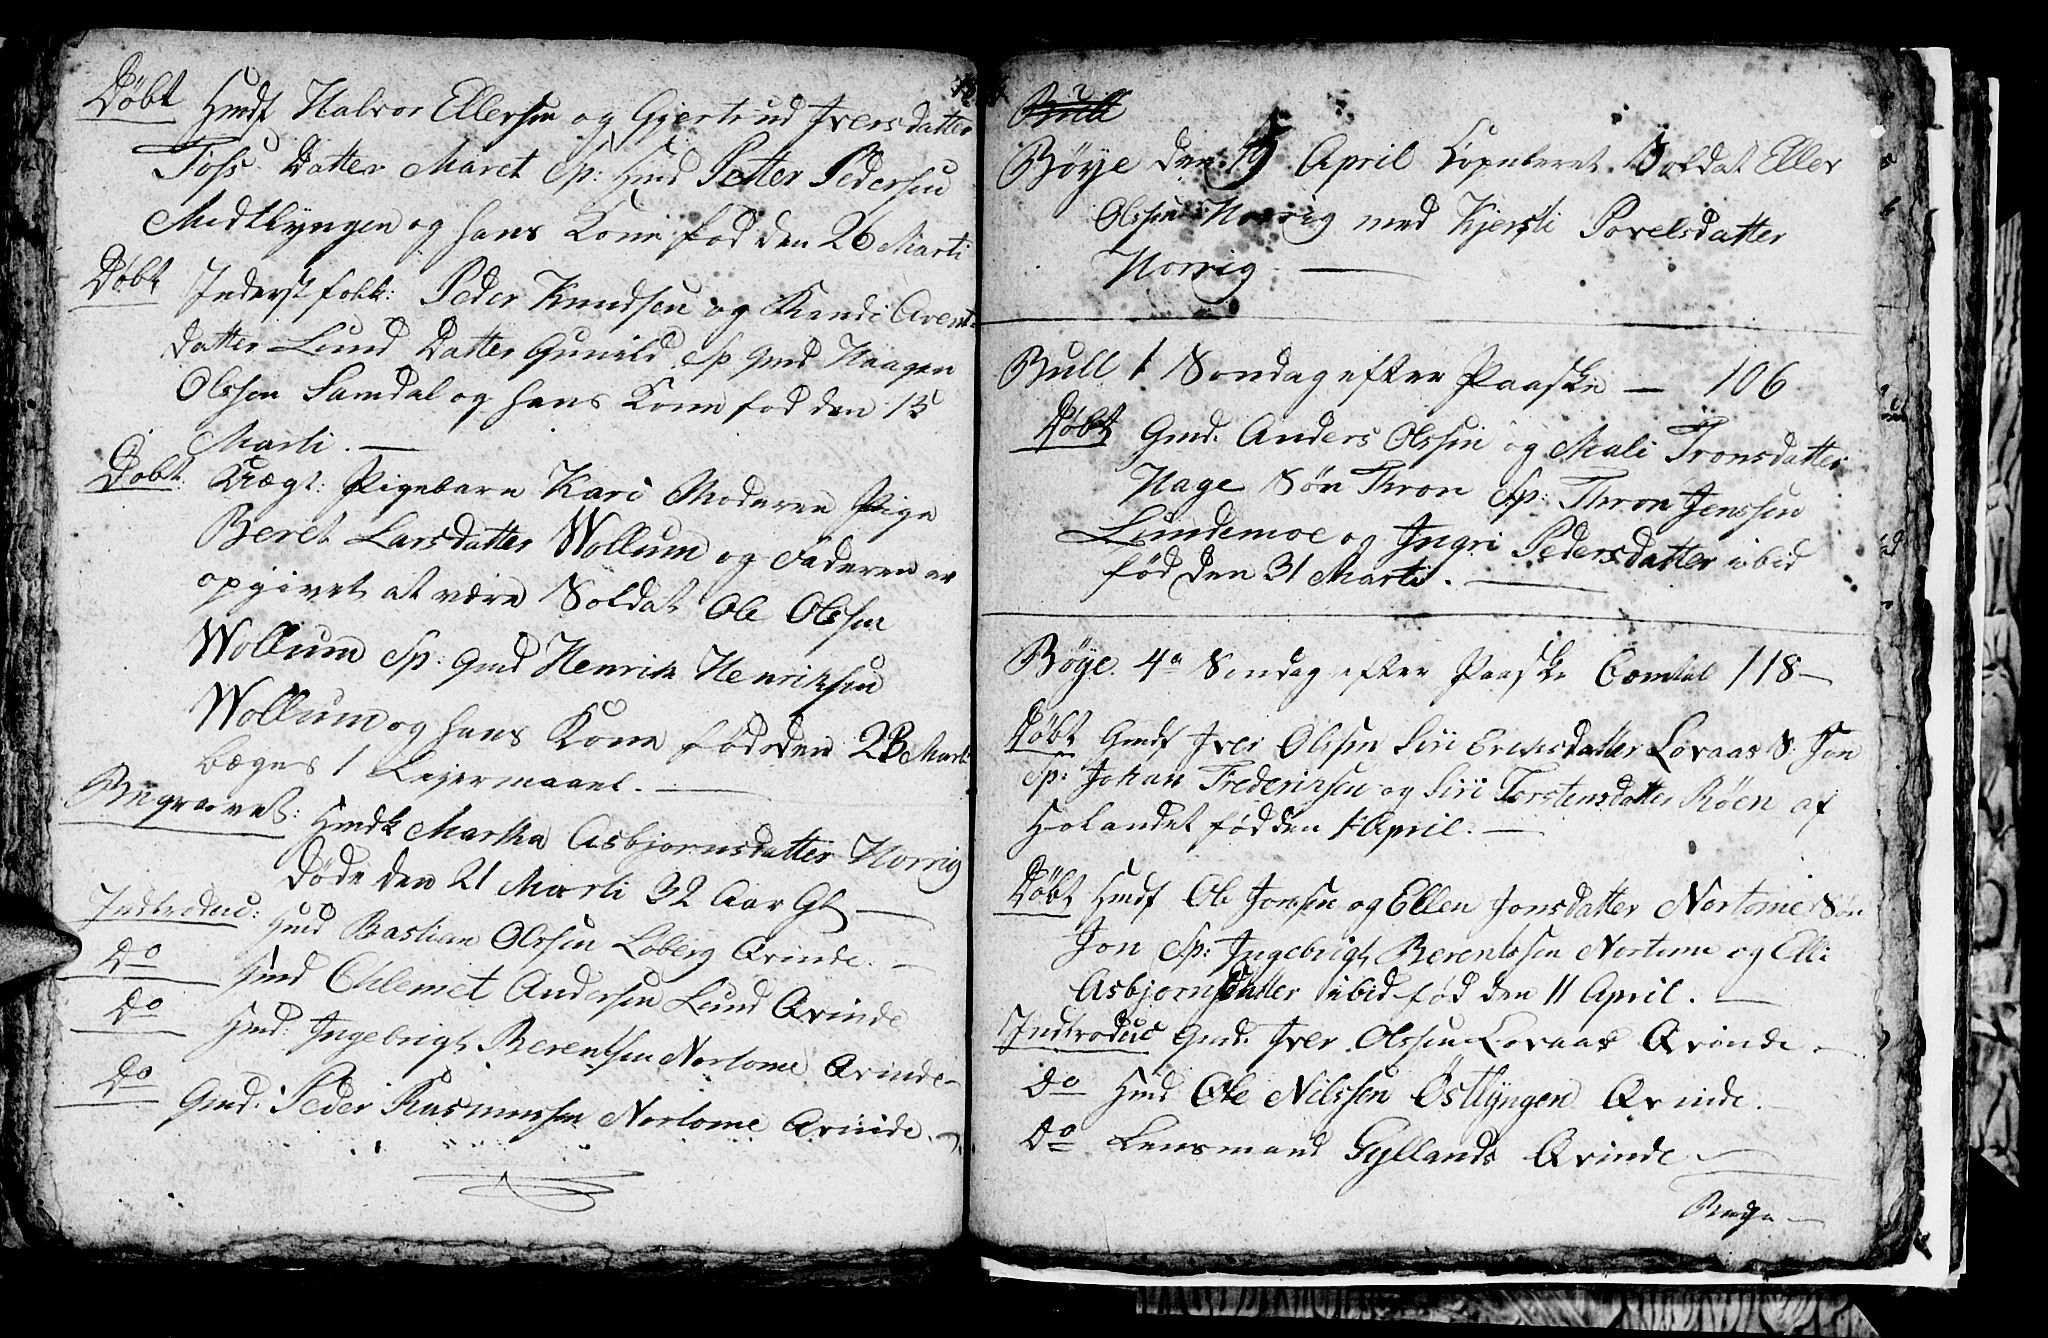 Døbt Hmdf Halvor Ellefsen og Gjertrud Iversdatter
Foss Datter Maret Sp: Hmd Petter Pedersen
Medtlyngen og hans Kone fød den 26 Marti
Døbt Inderst folk: Peder Knudsen og Randi Arent-
datter Lund Datter Gunild Sp Gmd Haagen
Olssen Samdal og hans Kone fød den 15
Marti. —
Døbt: Uægt: Pigebarn Kari Moderen Pige
Beret Larsdatter Wollum og Faderen er
opgivet at være Soldat Ole Olssen
Wollum Sp: Gmd Henrik Henriksen
Wollum og hans Kone fød den 23 Marti
begges 1 Lejermaael. —
Begravet: Hmdk Martha Asbjørnsdatter Horrig
Døde den 21 Marti 32 Aar Gl —
Indtroduc: Hmd Bastian Olssen Løberg Qvinde. —
Do Hmd Chlemet Andersen Lund Qvinde
Do Hmd: Ingebrigt Berentsen Nortome Qvinde —
Do Gmd: Peder Rasmussen Nortome Qvinde. —
Bull
Bøye den April Copuleret Soldat Ellev
Olssen Horrig med Kjersti Povelsdatter
Horrig —
Bull 1 Søndag efter Paaske — 106
Døbt Gmd. Anders Olssen og Mali Tronsdatter
Hage Søn Thron Sp: Thron Jenssen
Lundemoe og Ingri Pedersdatter ibid
fød den 31 Marti. —
Bøye. 4de Søndag efter Paaske Comtal 118 —
Døbt Gmdf Iver Olssen Siri Ericsdatter Lovaas S: Jon
Sp: Johan Frederiksen og Siri Torstensdatter Røen af
Holandet fød den 1 April. —
Døbt Hmdf Ole Jonssen og Ellen Jonsdatter Nortome Søn
Jon Sp: Ingebrigt Berentssen Nortome og Elli
Asbjornsdatter ibid fød den 11 April. —
Indtroduc Gmd. Iver Olssen Lovaas Qvinde —
Do Hmd Ole Nilssen Østlyngen Qvinde. —
Do Lensmand Gyllands Qvinde —